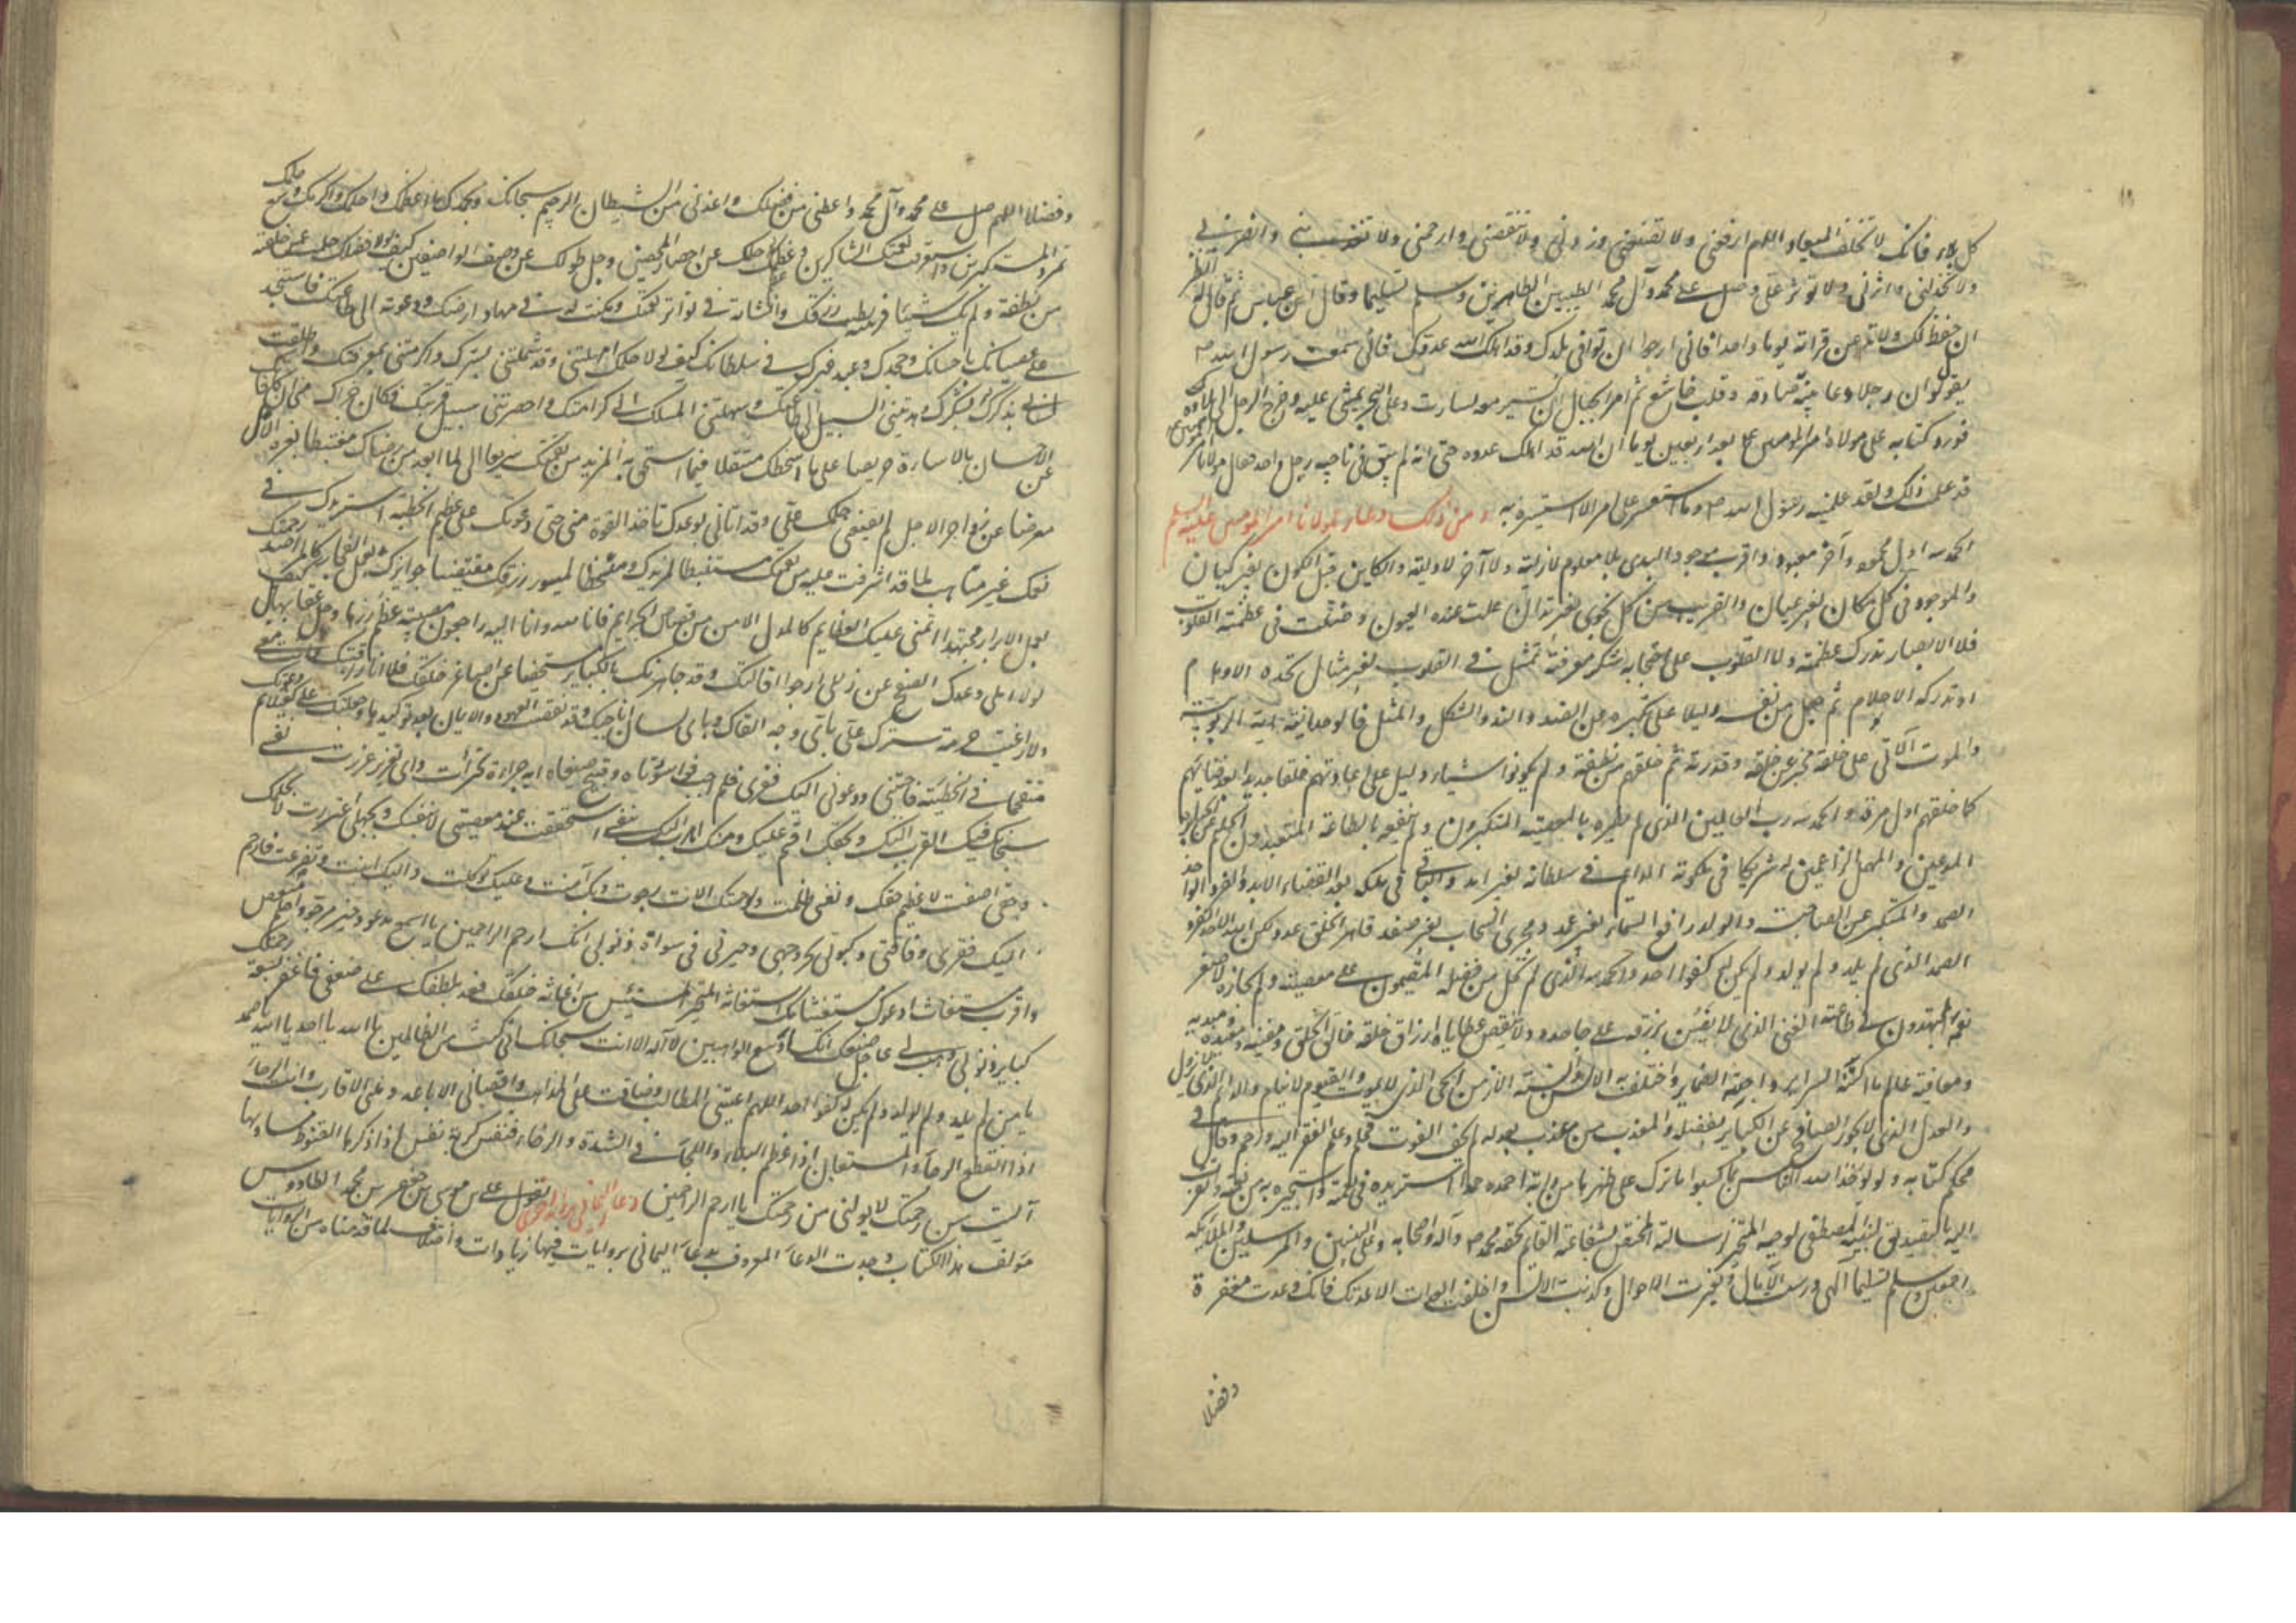 كل بلاء فانك لا تخلف الميعاد اللهم ارفعني ولا تضعني وزدني ولا تنقصني وارحمني ولا تعذبني وانصرني
ولا تخذلني واثرني ولا توثر علي وصل على محمد وآل محمد الطيبين الطاهرين وسلم تسليما وقال ابن عباس ثم قال له انظر
ان حفظ لك ولا تدعن قراته يوما واحدا فاني ارجوا ان توافي بلدك وقد اهلك الله عدوك فاني سمعت رسول الله ص
يقول لو ان رجلا دعا بنية صادقة وقلب خاشع ثم امر الجبال ان تسير معه لسارت وعلى البحر يمشي عليه وخرج الرجل الى بلاده
فورد كتابه على مولانا امير المومنين ع بعد اربعين يوما ان الله قد اهلك عدوه حتى انه لم يبق في ناحيه رجل واحد فقال مولانا امير المومنين ع
قد علمت ذلك ولقد علمنيه رسول الله ص وما استعسر علي امر الا استيسر به ومن ذلك دعاء لمولانا امير المومنين عليه السلم
الحمد لله اول محمود وآخر معبود واقرب موجود البدي بلا معلوم لازليته ولا آخر لاوليته والكاين قبل الكون بغير كيان
والموجود في كل مكان بغير عيان والقريب من كل نجوى بغير تدان علنت عنده الغيوب وضلت في عظمته القلوب
فلا الابصار تدرك عظمته ولا القلوب على احتجابه تنكر معرفته تمثل في القلوب بغير مثال تحده الاوهام
او تدركه الاحلام ثم جعل من نفسه دليلا على تكبره عن الضد والند والشكل والمثل فالوحدانية آية الربوبية
والموت الآتي على خلقه مخبر عن خلقه وقدرته ثم خلقهم من نطفة ولم يكونوا شيئا دليل على اعادتهم خلقا جديدا بعد فنائهم
كما خلقهم اول مرة والحمد لله رب العالمين الذي لم يضره بالمعصية المتكبرون ولم ينفعه بالطاعة المتعبدون الحليم عن الجبابرة
المدعين والممهل الزاعمين له شريكا في ملكوته الدايم في سلطانه بغير امد والباقي في ملكه بعد انقضاء الابد والفرد الواحد
الصمد والمتكبر عن الصاحبة والولد رافع السماء بغير عمد ومجري السحاب بغير صفد قاهر الخلق بغير عدد لكن الله الاحد الفرد
الصمد الذي لم يلد ولم يولد ولم يكن له كفوا احد والحمد لله الذي لم يخل من فضله المقيمون على معصيته ولم يجازه لاصغر
نعمه المجتهدون في طاعته الغني الذي لا يضن برزقه على جاحده ولا ينقص عطاياه ارزاق خلقه خالق الخلق ومفنيه ومعيده ومبديه
ومعافيه عالم ما اكنته السراير واجنته الضماير واختلفت به الالسن وانسته الازمن الحي الذي لا يموت والقيوم لا ينام والدائم الذي لا يزول
والعدل الذي لا يجور الصافح عن الكباير بفضله والمعذب من عذب بعدله لم يخف الفوت فحلم وعلم الفقر اليه فرحم وقال في
محكم كتابه ولو يؤاخذ الله الناس بما كسبوا ما ترك على ظهرها من دابة احمده حمدا استزيده في نعمته واستجير به من نقمته واتقرب
اليه بالتصديق لنبيه المصطفى لوحيه المتخير لرسالته المختص بشفاعته القايم بحقه محمد ص وآله واصحابه وعلى النبيين والمرسلين والملائكة
اجمعين وسلم تسليما الهي درست الآمال وتغيرت الاحوال وكذبت الالسن واخلفت العدات الا عدتك فانك وعدت مغفرة
وفضلا
وفضلا اللهم صل على محمد وآل محمد واعطني من فضلك واعذني من الشيطان الرجيم سبحانك وبحمدك ما اعظمك واحلمك واكرمك وسع حلمك
تمرد المستكبرين واستغرقت نعمتك الشاكرين وعظم حلمك عن احصاء المحصين وجل طولك عن وصف الواصفين كيف لولا فضلك حلمت عمن خلقته
من نطفة ولم يك شيئا فربيته بطيب رزقك وانشاته في تواتر نعمك ومكنت له في مهاد ارضك ودعوته الى طاعتك فاستنجد
على عصيانك باحسانك وجحدك وعبد غيرك في سلطانك كيف لولا حلمك امهلتني وقد شملتني بسترك واكرمتني بمعرفتك واطلقت
لساني بذكرك وشكرك وهديتني السبيل الى طاعتك وسهلتني المسلك الى كرامتك واحضرتني سبيل قربتك فكان جزاك مني ان كافاتك
عن الاحسان بالاساءة حريصا على ما اسخطك متنقلا فيما استحق به المزيد من نقمتك سريعا الى ما ابعد من رضاك مغتبطا بغرة الامل
معرضا عن زواجر الاجل لم يقنعني حلمك عني وقد اتاني توعدك تاخذ القوة مني حتى دعوتك على عظيم الخطيئة استزيدك في
نعمك غير متاهب لما قد اشرفت عليه من نقمتك مستبطا لمزيدك ومتسخطا لميسور رزقك مقتضيا جوايزك بعمل الفجار كالمراصد رحمتك
بعمل الابرار مجتهدا اتمنى عليك العظايم كالمدل الامن من قصاص الجرايم فانا لله وانا اليه راجعون مصيبة عظم رزءها وجل عقابها بل كيف
لولا املي ووعدك الصفح عن زللي ارجوا اقالتك وقد جاهرتك بالكباير مستخفيا عن اصاغر خلقك فلا انا راقبتك وانت معي
ولا راعيت حرمة سترك علي باي وجه القاك وباي لسان اناجيك وقد نقضت العهود والايمان بعد توكيدها وجعلتك علي كفيلا ثم دعوتك
مقتحما في الخطيئة فاجبتني ودعوتني اليك فقري فلم اجب فوا سوءتاه وقبيح صنيعاه اية جراءة تجرات واي تغرير غررت نفسي
سبحانك فبك اتقرب اليك وبحقك اقسم عليك ومنك اهرب اليك بنفسي استخففت عند معصيتي لا بنفسك وبجهلي اغتررت لا بحلمك
وحقي اضعت لا عظيم حقك ونفسي ظلمت ولرحمتك الان رجوت وبك آمنت وعليك توكلت واليك انبت وتضرعت فارحم
اليك فقري وفاقتي وكبوتي لحر وجهي وحيرتي في سواة ذنوبي انك ارحم الراحمين يا اسمع مدعو وخير مرجو واحلم مغض
واقرب مستغاث ادعوك مستغيثا بك استغاثة المتحير المستيئس من اغاثة خلقك فعد بلطفك على ضعفي فاغفر بسعة رحمتك
كباير ذنوبي وهب لي عاجل صنعك انك اوسع الواهبين لا اله الا انت سبحانك اني كنت من الظالمين يا الله يا احد يا الله يا صمد
يا من لم يلد ولم يولد ولم يكن له كفوا احد اللهم اعيتني المطالب وضاقت علي المذاهب واقصاني الاباعد وملني الاقارب وانت الرجاء
اذا انقطع الرجاء والمستعان اذا عظم البلاء واللجاء في الشدة والرخاء فنفس كربة نفس اذا ذكرها القنوط مساويها
آيست من رحمتك لا تولني من رحمتك يا ارحم الراحمين دعاء اليماني يقول علي بن موسى بن جعفر بن محمد الطاووس
مولف هذا الكتاب وجدت الدعاء المعروف بدعاء اليماني بروايات فيها زيادات واختلاف لما قدمناه من الروايات